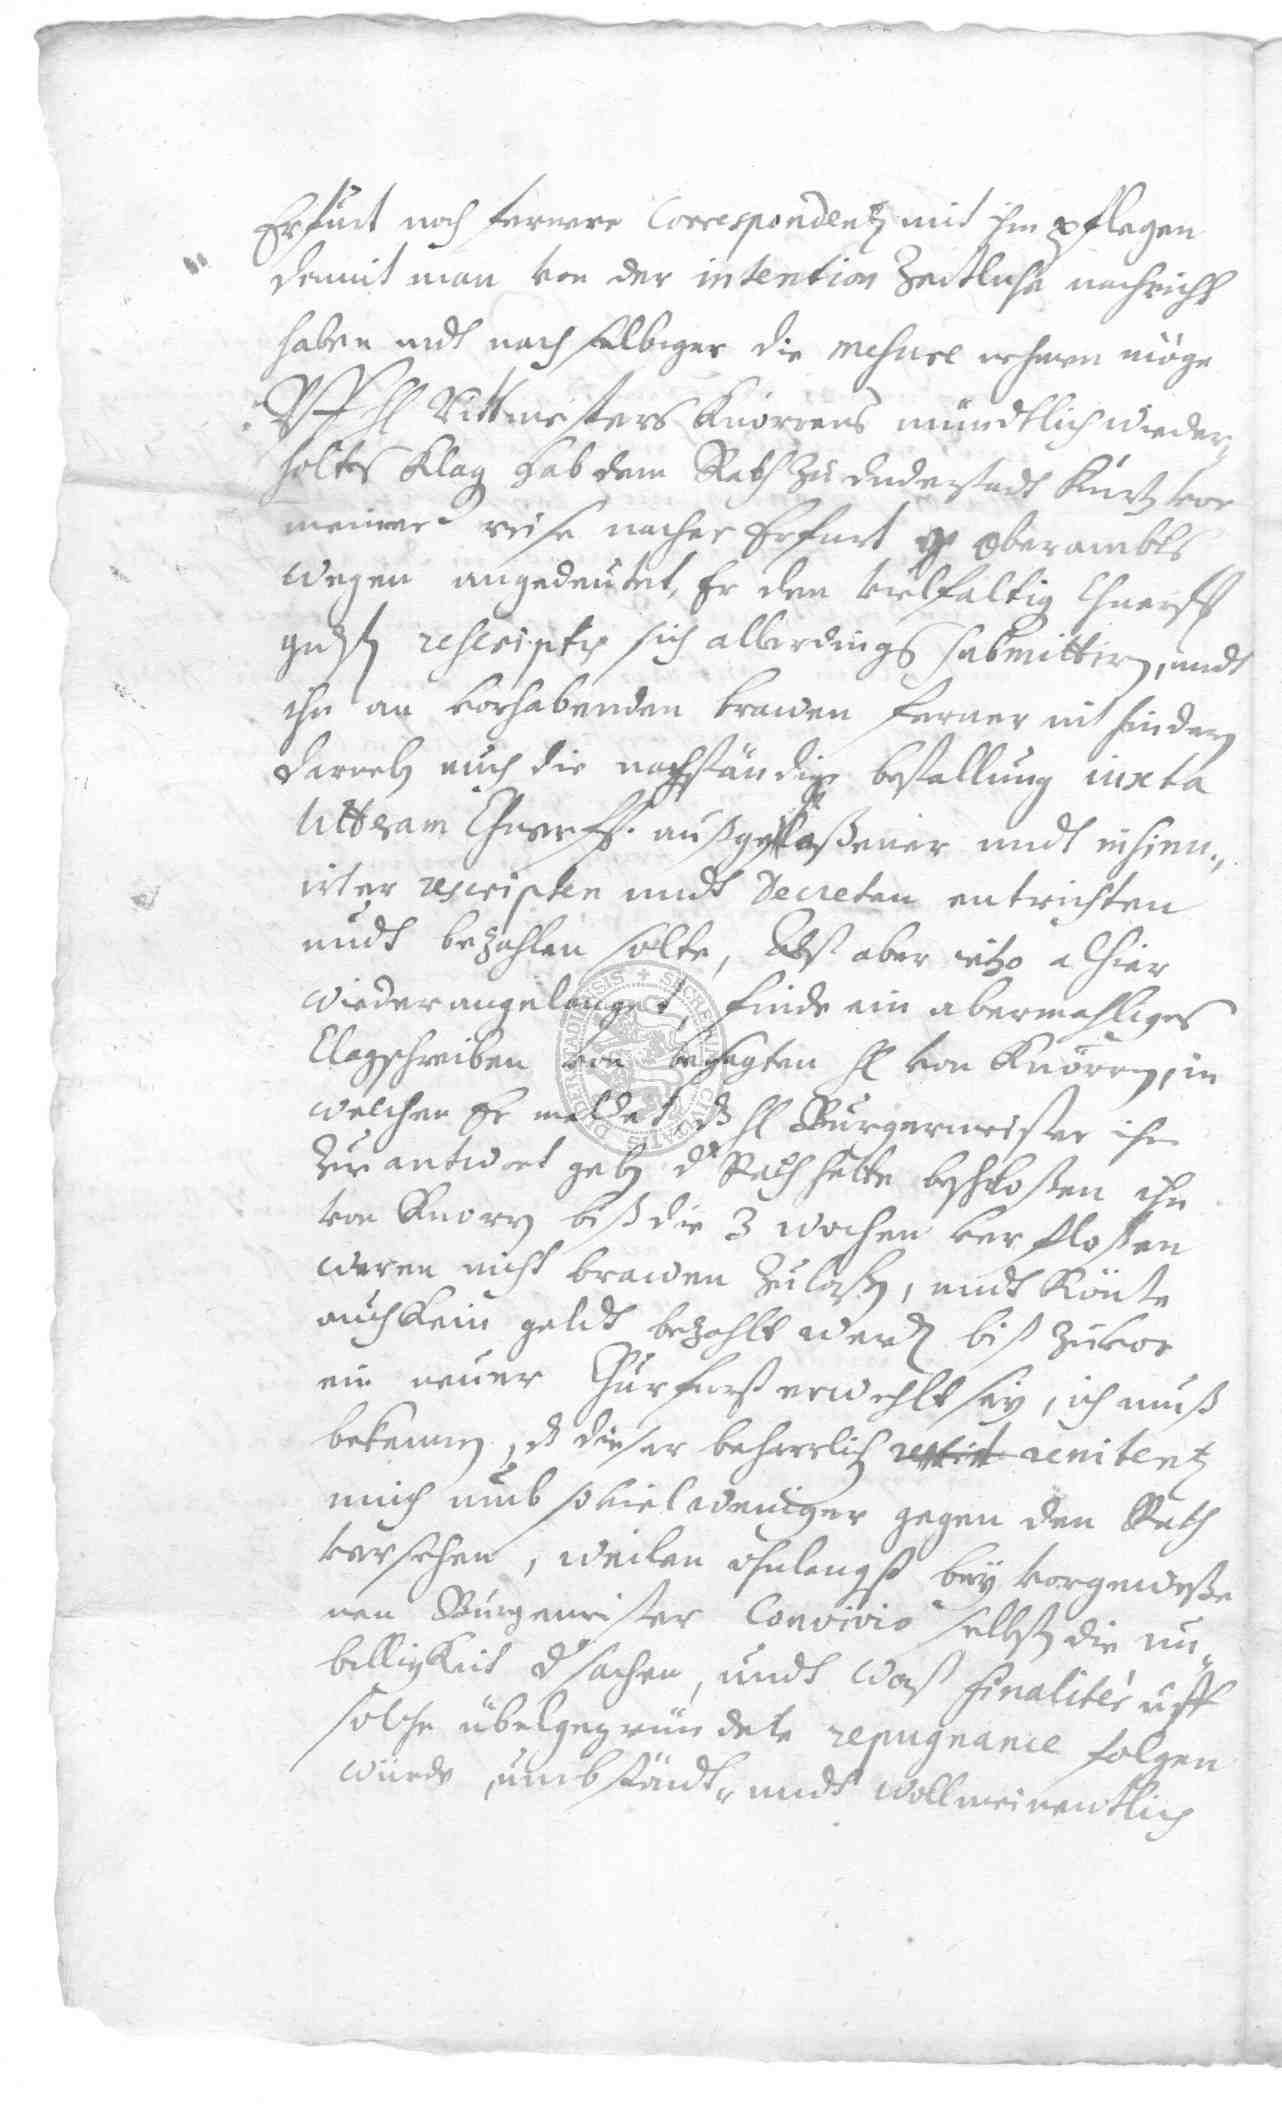 Erfurt noch fernere Correspondentz mit ihm pflegen
damit man von der intention Zeitliche nachricht
haben undt nach selbiger die mesure nehmen möge
Uff H Rittmeisters Knorrens mündtlich wieder„
holtes Klag hab dem Rath zu duderstadt kurtz vor
meiner reise nacher Erfurt oberambts
wegen angedeutet, Er den vielfaltig Churfl
gndsten rescriptis sich allerdings submittiren, undt
ihn an vorhabenden brawen ferner nit hindern
darneb auch die nachständige bestallung iuxta
litteram Churfl. außgelaßener undt insinu„
irter rescripten undt Decreten entrichten
undt bezahlen solte, Alß aber ietzo alhier
wieder angelanget, finde ein abermahliges
Clagschreiben von besagten H von Knorren, in
welchen Er meldet, dß H Burgermeister ihm
zur antwort geben dr Rath hette beschloßen ihn
von Knorrn biß die 3 wochen verfloßen
weren nicht brawen zulaßen, undt Könte
auch Kein geldt bezahlt werden biß zuvor
ein neuer Churfurst erwehlt sey, ich muß
bekennen, dß dieser beharrlich renitentz
mich umb soviel weniger gegen den Rath
versehen, weilen ohnlengst bey vorgeweße
nen Burgermeister Convivio selbst die un„
billigkeit dr sachen, undt waß finalitér uff
solche übelgegründete repugnance folgen
würde, umbständt„ undt wollmeinentlich
SECRETUM CIVITATIS DUDERSTADENSIS